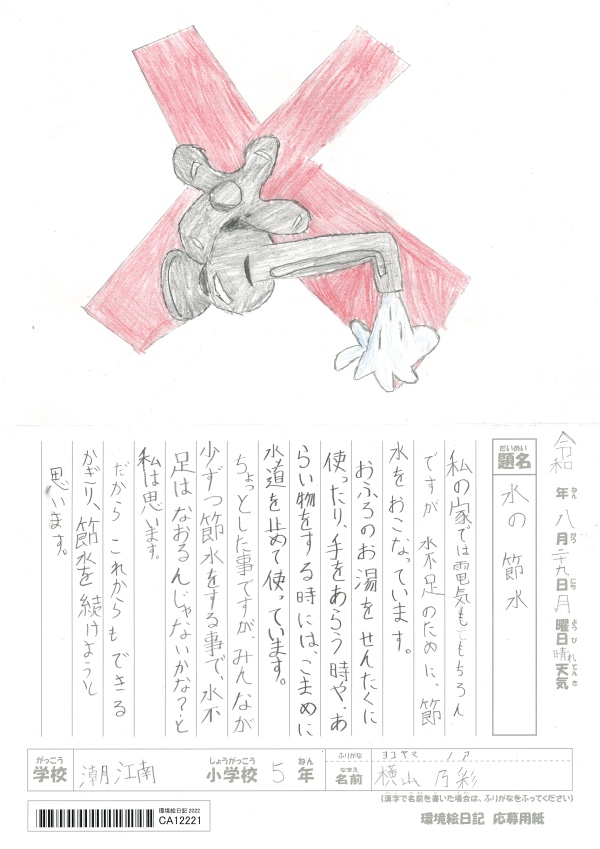 令和 年 八月二十九日 月曜日 晴れ 天気
ねん がつ にち ようび てんき
だいめい
題名
水の節水
私の家では電気もでもちろん
ですが、水不足のために、節
水をおこなっています。
おふろのお湯をせんたくに
使ったり、手をあらう時や、あ
らい物をする時には、こまめに
水道を止めて使っています。
ちょっとした事ですが、みんなが
少ずつ節水をする事で、水不
足はなおるんじゃないかな?と
私は思います。
だからこれからもできる
かぎり、節水を続けようと
思います。
がっこう しょうがっこう ねん
学校 潮江南 小学校 5年
ふりがな ヨコヤマ ノア
なまえ
名前 横山 乃彩
(漢字で名前を書いた場合は、ふりがなをふってください)
環境絵日記 2022
CA12221
環境絵日記 応募用紙